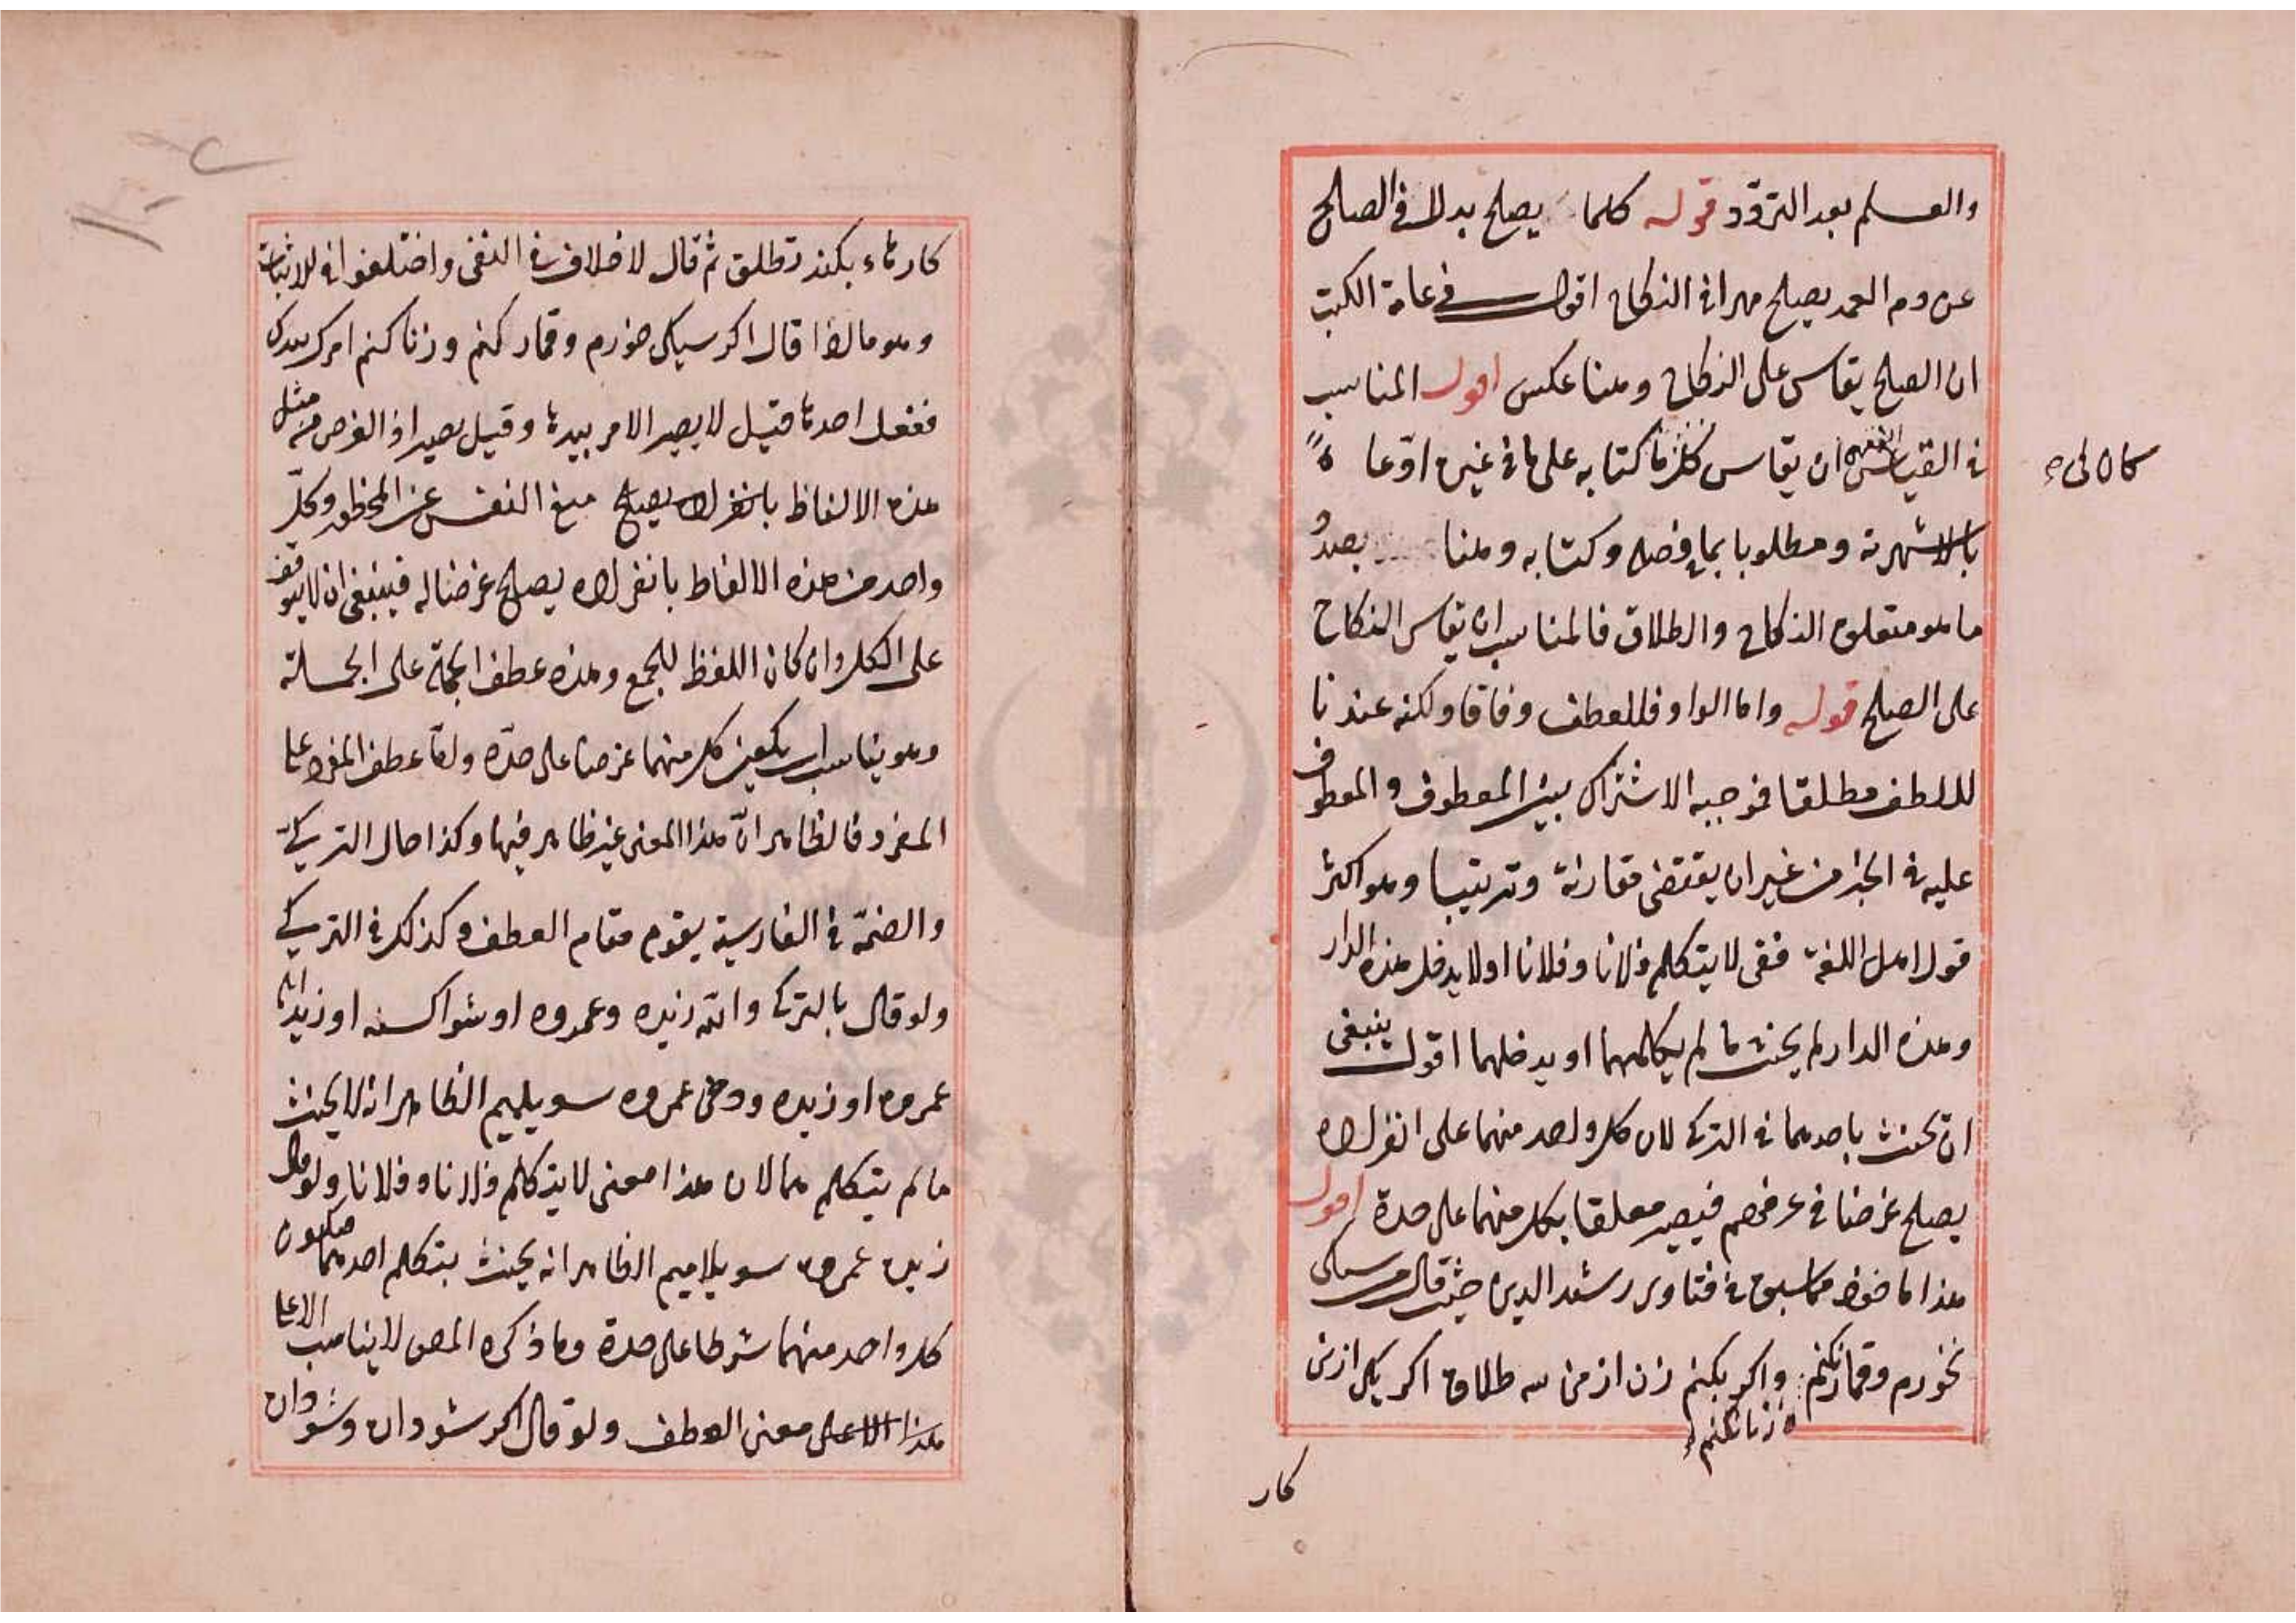 والعلم بعد التردّد قوله كلما يصلح بدلا في الصلح
عن دم العمد يصلح مهرا في النكاح اقول في عامة الكتب
ان الصلح يقاس على النكاح وهنا عكس اقول المناسب
في القياس ان يقاس كل ما كتابه على ما في غيره ادّعا
كان لى
بالاشهرية ومطلوبا بما فصله وكتابه وهنا بصدد
ما هو متعلق النكاح والطلاق فالمناسب ان يقاس النكاح
على الصلح قوله واما الواو فللعطف وفاقا ولكنه عندنا
للعطف مطلقا فموجبه الاشتراك بين المعطوف والمعطوف
عليه في الخبر من غير ان يقتضى مقارنة وترتيبا وهو اكثر
قول اهل اللغة ففى لا يتكلم فلانا وفلانا او لا يدخل هذه الدار
وهذه الدار لم يحنث ما لم يكلمهما او يدخلهما اقول ينبغى
ان يحنث باحدهما في التركى لان كل واحد منهما على انفراده
يصلح غرضا في عرفهم فيصير معلقا بكل منهما على حدة اقول
هذا ماخوذ مما سبق في فتاوى رشد الدين حيث قال من سيكى
نخورم وقمار نكنم وزنا نكنم واكر بكنم زن از من سه طلاق اكر يكى ازين
كار
كارها بكند تطلق ثم قال لا خلاف في النفى واختلفوا في الاثبات
وهو ما اذا قال اكر سيكى خورم وقمار كنم وزنا كنم امرك بيدك
ففعل احدها قيل لا يصير الامر بيدها وقيل يصير اذ الغرض من مثل
هذه الالفاظ بانفراده يصلح منع النفس عن المحظور وكلّ
واحد من هذه الالفاظ بانفراده يصلح غرضا له فينبغى ان لا يتوقف
على الكل وان كان اللفظ للجمع وهذه عطف الجملة على الجملة
وهو يناسب ان يكون كل منهما غرضا على حدّه وامّا عطف المفرد على
المفرد فالظاهر انّ هذا المعنى غير ظاهر فيها وكذا حال التركىّ
والضمّة في الفارسية يقوم مقام العطف وكذلك في التركى
ولو قال بالتركى والله زيده وعمروه او شواكسنه او زيدله
عمروه او زيده ودخى عمروه سويلميم الظاهر انه لا يحنث
ما لم يتكلم هما لان هذا معنى لا يتكلم فلانا وفلانا ولو قال
زيده عمروه سويلاميم الظاهر انه يحنث بتكلم احدهما فيكون
كل واحد منهما شرطا على حدة وما ذكره المص لا يناسب الا على
هذا الا على معنى العطف ولو قال اكر شو دان وشو دان